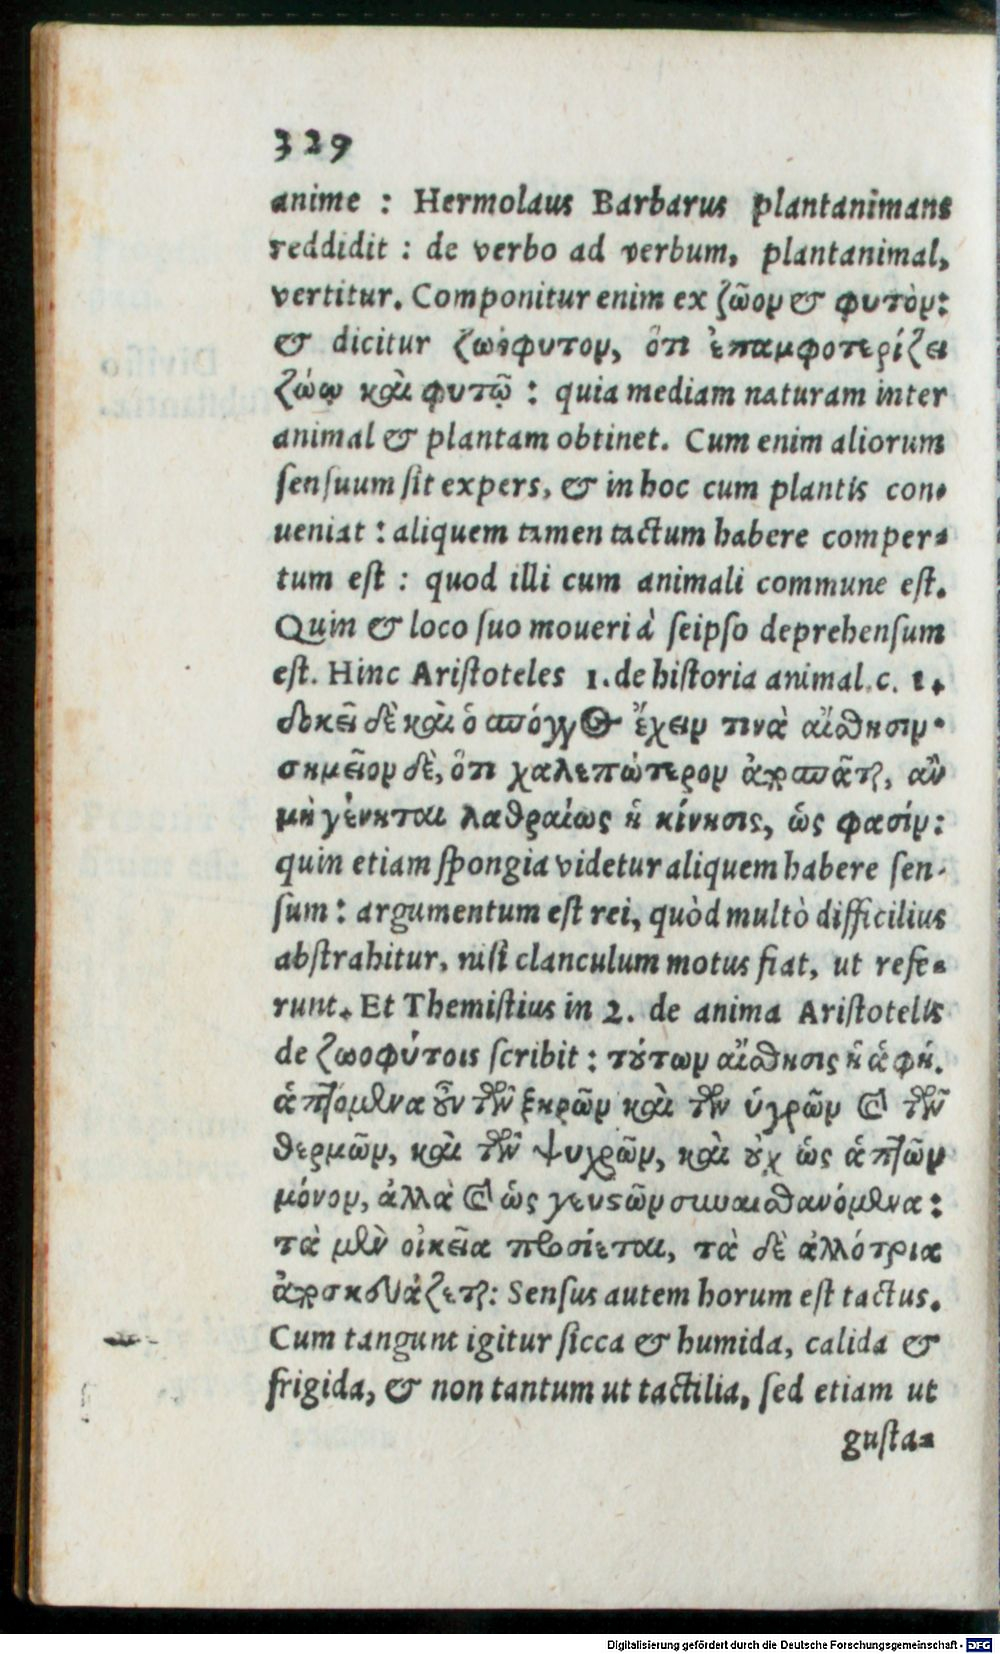 329
anime : Hermolaus Barbarus plantanimans
reddidit : de verbo ad verbum, plantanimal,
vertitur. Componitur enim ex ζῶον & φυτὸν:
& dicitur ζωόφυτον, ὅτι ἐπαμφοτερίζει
ζώῳ καὶ φυτῷ : quia mediam naturam inter
animal & plantam obtinet. Cum enim aliorum
ſenſuum ſit expers, & in hoc cum plantis con-
ueniat : aliquem tamen tactum habere comper-
tum eſt : quod illi cum animali commune eſt.
Quin & loco ſuo moueri à ſeipſo deprehenſum
eſt. Hinc Ariſtoteles 1. de hiſtoria animal. c. 1.
δοκεῖ δὲ καὶ ὁ σπόγγος ἔχειν τινὰ αἴσθησιν·
σημεῖον δὲ, ὅτι χαλεπώτερον ἀποσπᾶται, ἂν
μὴ γένηται λαθραίως ἡ κίνησις, ὥς φασίν:
quin etiam ſpongia videtur aliquem habere ſen-
ſum : argumentum eſt rei, quòd multò difficilius
abſtrahitur, niſi clanculum motus fiat, ut refe-
runt. Et Themiſtius in 2. de anima Ariſtotelis
de ζωοφύτοις ſcribit : τούτων αἴσθησις ἡ ἁφή.
ἁπτόμενα οὖν τῶν ξηρῶν καὶ τῶν ὑγρῶν καὶ τῶν
θερμῶν, καὶ τῶν ψυχρῶν, καὶ οὐχ ὡς ἁπτῶν
μόνον, ἀλλὰ καὶ ὡς γευστῶν συναισθανόμενα:
τὰ μὲν οἰκεῖα προσίεται, τὰ δὲ ἀλλότρια
ἀποσκευάζεται: Senſus autem horum eſt tactus.
Cum tangunt igitur ſicca & humida, calida &
frigida, & non tantum ut tactilia, ſed etiam ut
guſta-
Digitalisierung gefördert durch die Deutsche Forschungsgemeinschaft - DFG